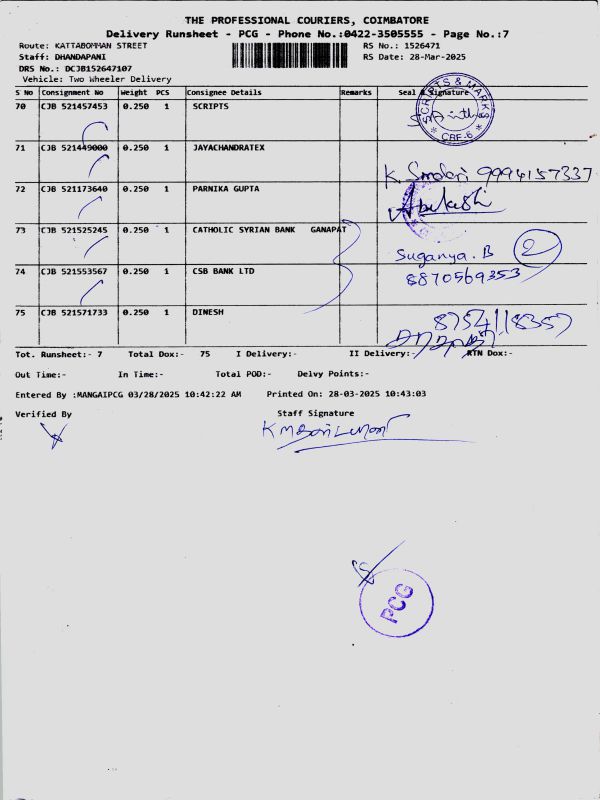 THE PROFESSIONAL COURIERS, COIMBATORE
Delivery Runsheet - PCG - Phone No.:0422-3505555 - Page No.:7
Route: KATTABOMMAN STREET RS No.: 1526471
Staff: DHANDAPANI RS Date: 28-Mar-2025
DRS No.: DCJB152647107
Vehicle: Two Wheeler Delivery
S No Consignment No Weight PCS Consignee Details Remarks Seal & Signature
70 CJB 521457453 0.250 1 SCRIPTS
SCRIPTS & MARKS
CBE-6
71 CJB 521449000 0.250 1 JAYACHANDRATEX
K. 9994157337
72 CJB 521173640 0.250 1 PARNIKA GUPTA
73 CJB 521525245 0.250 1 CATHOLIC SYRIAN BANK GANAPAT
Suganya. B 2
74 CJB 521553567 0.250 1 CSB BANK LTD 8870569353
75 CJB 521571733 0.250 1 DINESH 8754118357
Tot. Runsheet:- 7 Total Dox:- 75 I Delivery:- II Delivery:- RTN Dox:-
Out Time:- In Time:- Total POD:- Delvy Points:-
Entered By :MANGAIPCG 03/28/2025 10:42:22 AM Printed On: 28-03-2025 10:43:03
Verified By Staff Signature
PCG